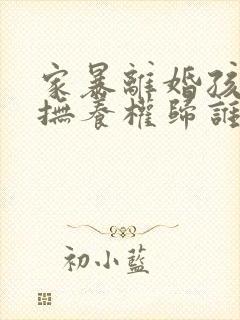 家暴離婚孩
撫養權歸誰
初小藍